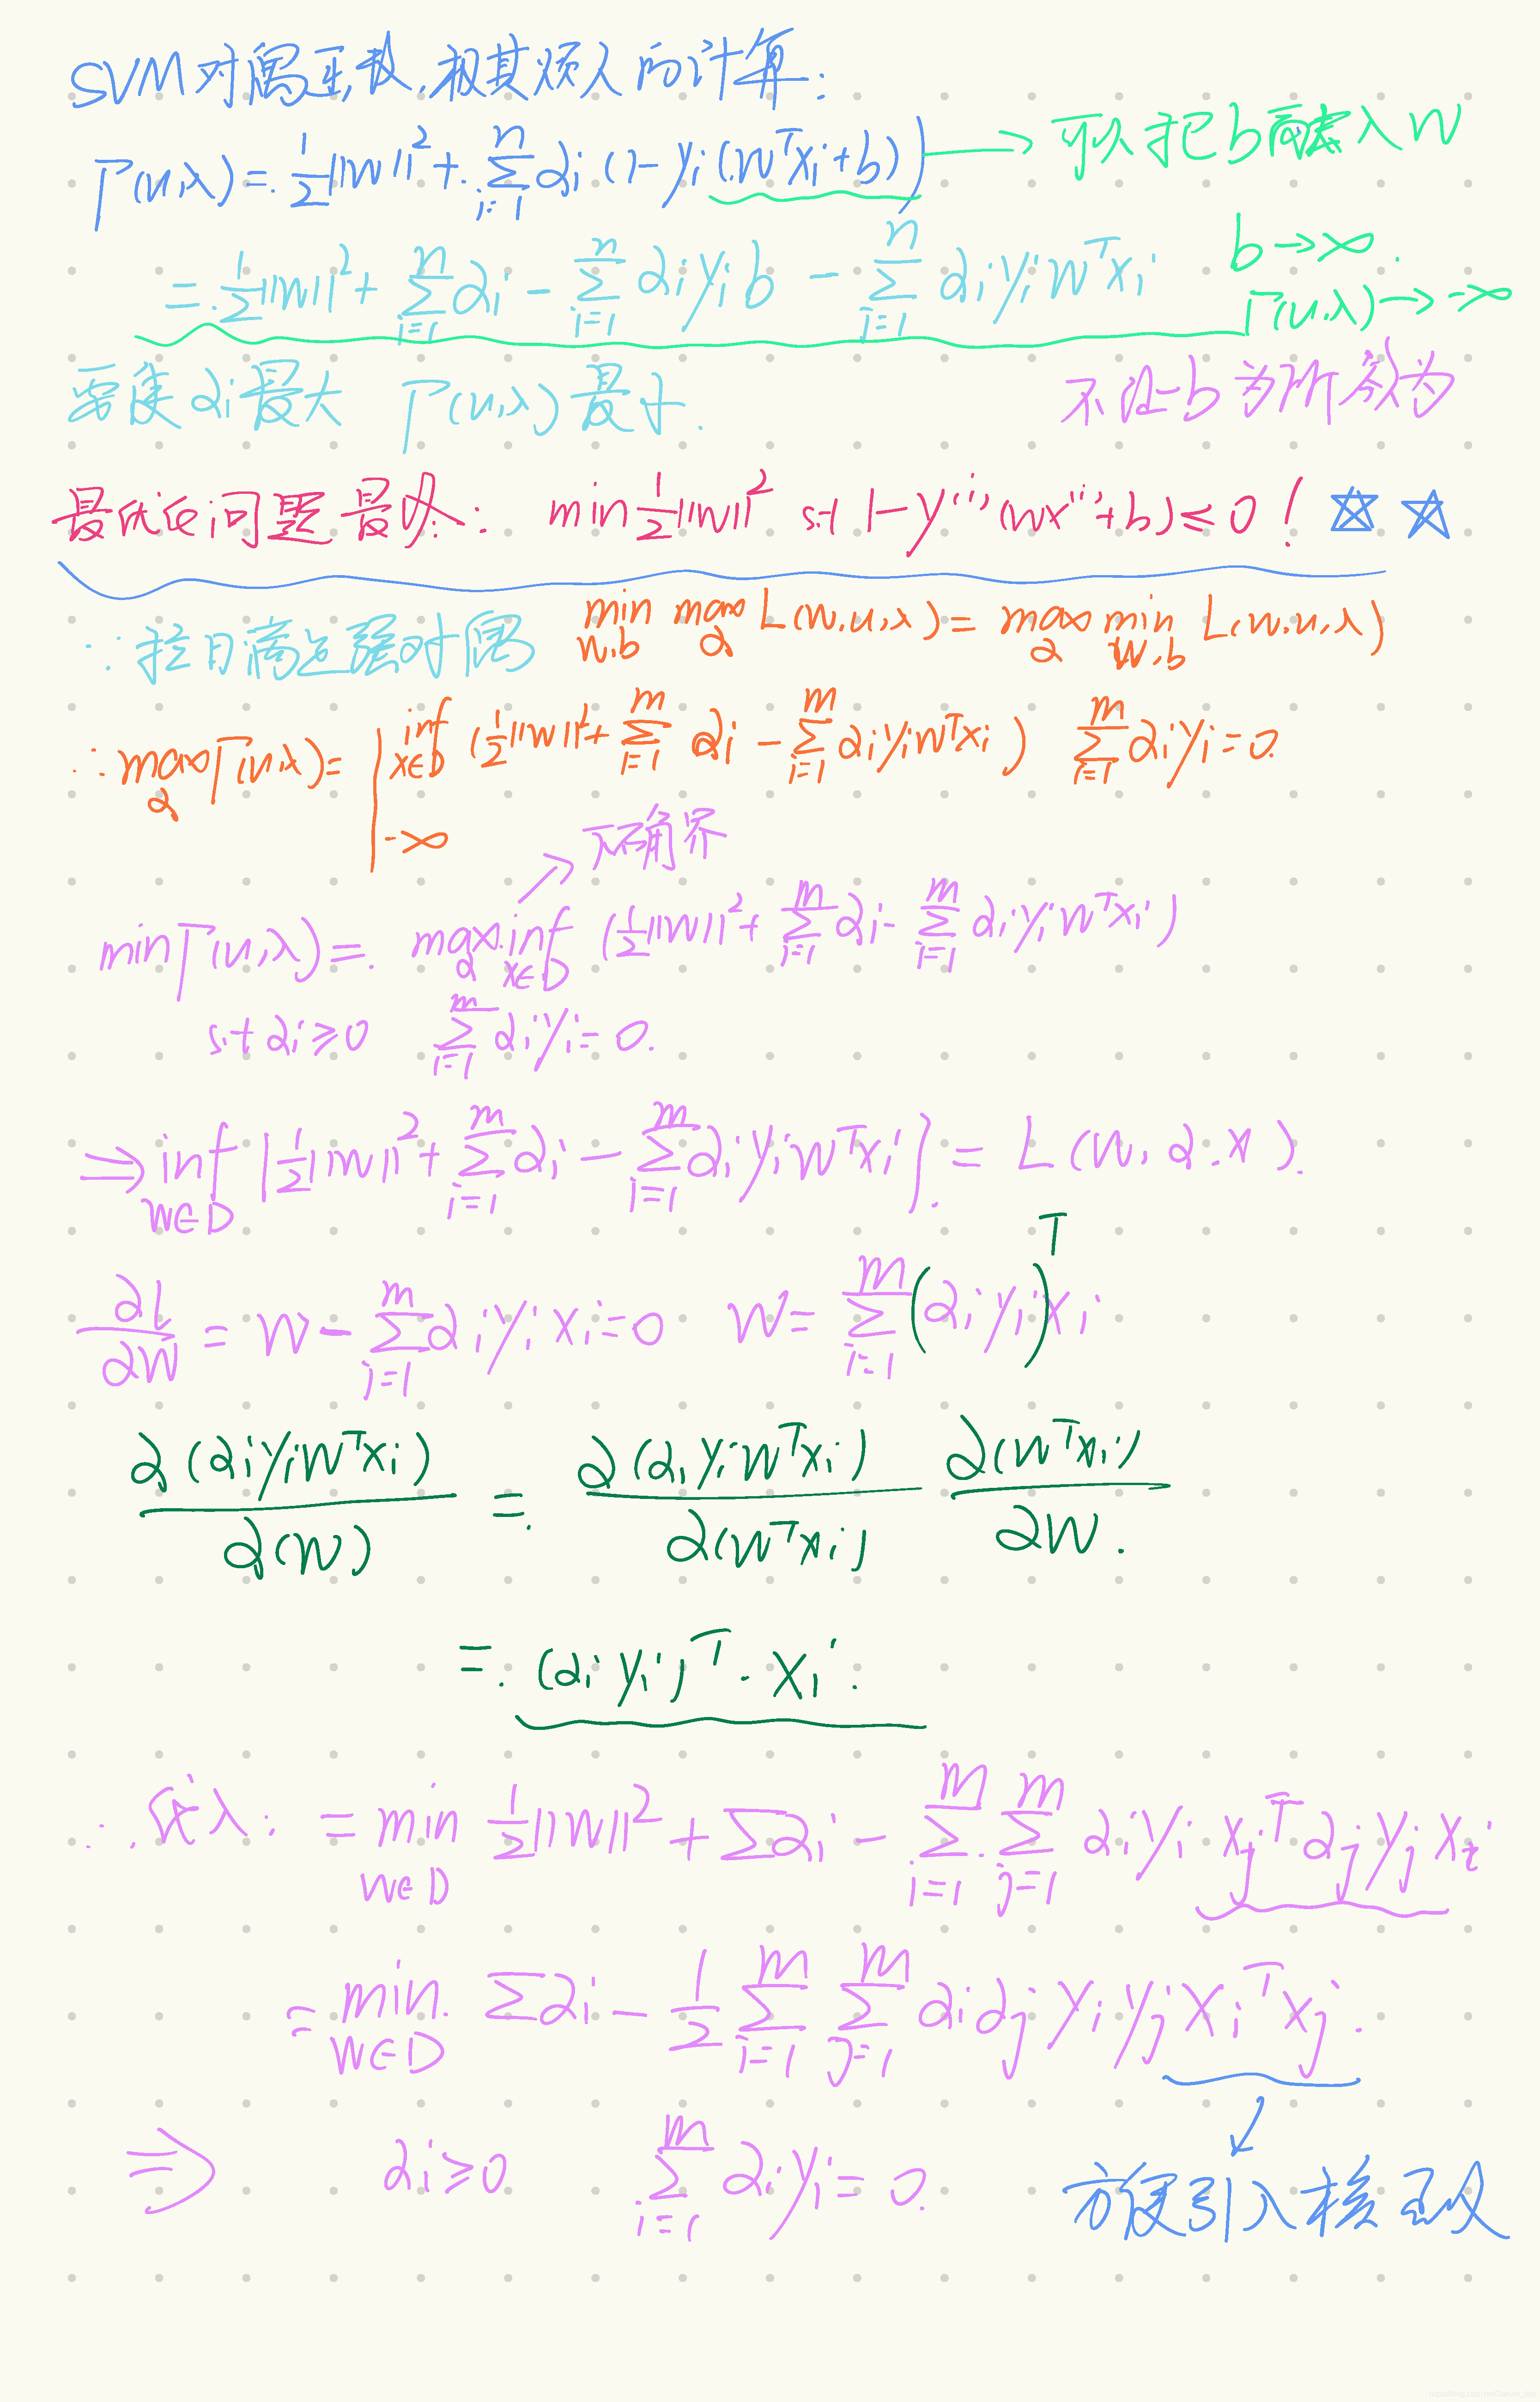 SVM对偶函数,极其烦人的计算:
Γ(u,λ)= ½||w||² + Σ_{i=1}^{n} αi (1-yi(w^T xi+b)) → 可以把b融入w
= ½||w||² + Σ_{i=1}^{n} αi - Σ_{i=1}^{n} αi yi b - Σ_{i=1}^{n} αi yi w^T xi
b→∞.
Γ(u,λ)→-∞
需使αi最大 Γ(u,λ)最小.
不让b为所欲为
最优化问题最: min ½||w||² s.t 1-y^{(i)}(wx^{(i)}+b)≤0! ☆☆
∵拉日满足强对偶 min_{w,b} max_{α} L(w,u,λ) = max_{α} min_{w,b} L(w,u,λ)
∴ max_{α} Γ(u,λ)= | inf_{x∈D} (½||w||² + Σ_{i=1}^{m} αi - Σ_{i=1}^{m} αi yi w^T xi) Σ_{i=1}^{m} αi yi=0.
-∞
→ 下确界
min Γ(u,λ)= max_{α} inf_{x∈D} (½||w||² + Σ_{i=1}^{m} αi - Σ_{i=1}^{m} αi yi w^T xi)
s.t αi≥0 Σ_{i=1}^{m} αi yi=0.
⇒ inf_{w∈D} {½||w||² + Σ_{i=1}^{m} αi - Σ_{i=1}^{m} αi yi w^T xi} = L(w,α,x).
∂L/∂w = w - Σ_{i=1}^{m} αi yi xi=0 w= Σ_{i=1}^{m} (αi yi)^T xi
∂(αi yi w^T xi)/∂(w) = ∂(αi yi w^T xi)/∂(w^T xi) ∂(w^T xi)/∂w.
= (αi yi)^T · xi.
∴代入: = min_{w∈D} ½||w||² + Σαi - Σ_{i=1}^{m} Σ_{j=1}^{m} αi yi xj^T αj yj xi
= min_{w∈D} Σαi - ½ Σ_{i=1}^{m} Σ_{j=1}^{m} αi αj yi yj xi^T xj.
⇒ αi≥0 Σ_{i=1}^{m} αi yi=0.
方便引入核函数